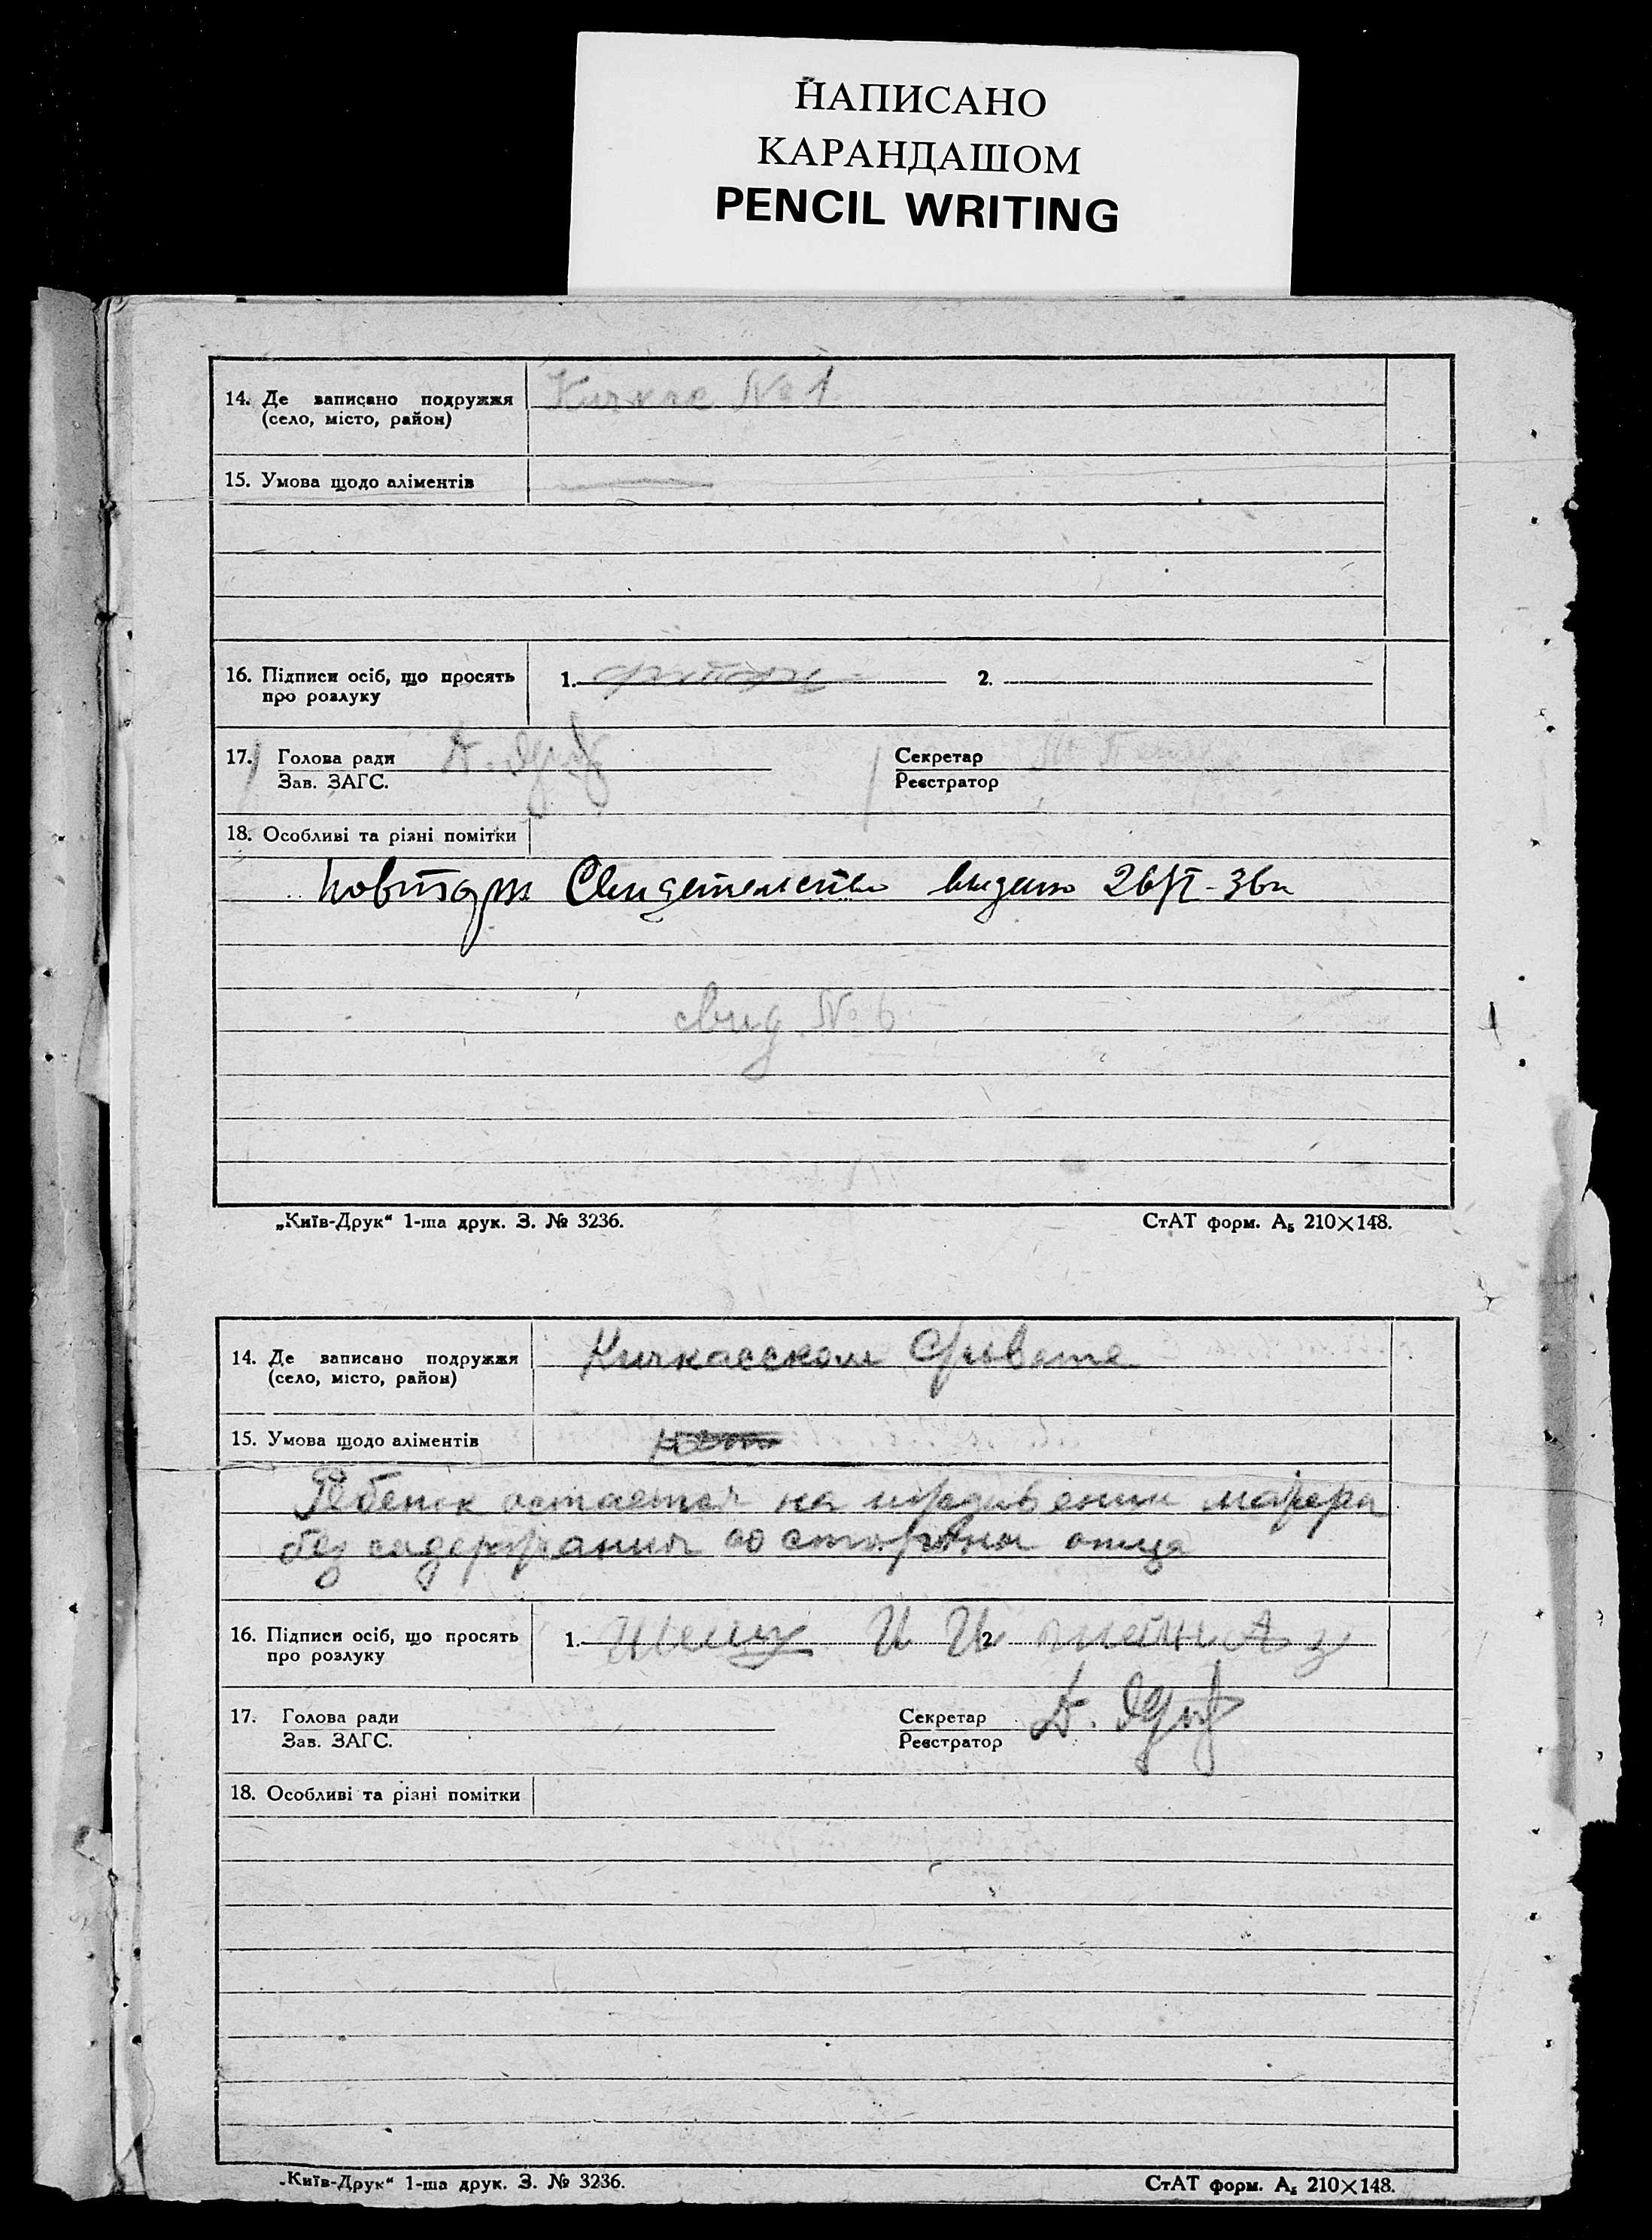 НАПИСАНО
КАРАНДАШОМ
PENCIL WRITING
14. Де записано подружжя Кичкас № 1
(село, місто, район)
15. Умова щодо аліментів
16. Підписи осіб, що просять 1. 2.
про розлуку
17. Голова ради Секретар
Зав. ЗАГС. Реєстратор
18. Особливі та різні помітки
повторн Свидетельство видано 26/VI-36г
свид № 6
„Київ-Друк“ 1-ша друк. З. № 3236. СтАТ форм. А₅ 210×148.
14. Де записано подружжя Кичкасском
(село, місто, район)
15. Умова щодо аліментів нет
Ребенок остается на матери
без содержания со стороны отца
16. Підписи осіб, що просять 1. 2.
про розлуку
17. Голова ради Секретар
Зав. ЗАГС. Реєстратор
18. Особливі та різні помітки
„Київ-Друк“ 1-ша друк. З. № 3236. СтАТ форм. А₅ 210×148.